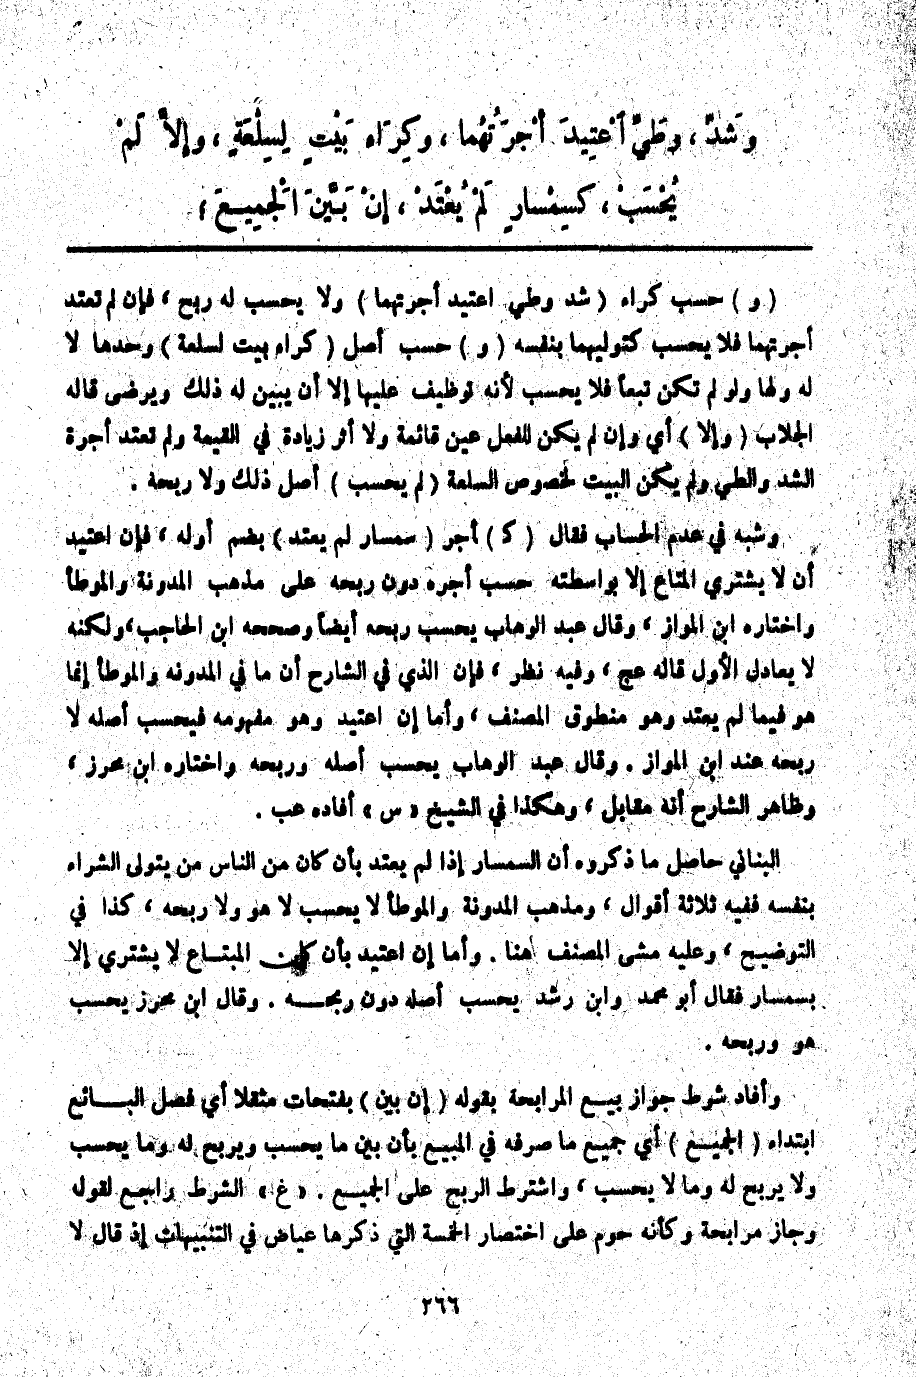 وَشَدٍّ ، وطَيٍّ أُعْتِيدَ أُجْرَتُهُما ، وكِرَاءِ بَيْتٍ لِسِلْعَةٍ ، وإلاَّ لَمْ
يُحْسَبْ ، كَسِمْسارٍ لَمْ يُعْتَدْ ، إنْ بَيَّنَ الْجَمِيعَ ؛
( و ) حسب كراء ( شد وطي اعتيد أجرتهما ) ولا يحسب له ربح ، فإن لم تعتد
أجرتهما فلا يحسب كتوليهما بنفسه ( و ) حسب أصل ( كراء بيت لسلعة ) وحدها لا
له ولها ولو لم تكن تبعاً فلا يحسب لأنه توظيف عليها إلا أن يبين له ذلك ويرضى قاله
الجلاب ( وإلا ) أي وإن لم يكن للفعل عين قائمة ولا أثر زيادة في القيمة ولم تعتد أجرة
الشد والطي ولم يكن البيت لخصوص السلعة ( لم يحسب ) أصل ذلك ولا ربحة .
وشبه في عدم الحساب فقال ( كـ ) أجر ( سمسار لم يعتد ) بضم أوله ، فإن اعتيد
أن لا يشتري المتاع إلا بواسطته حسب أجره دون ربحه على مذهب المدونة والموطأ
واختاره ابن المواز ، وقال عبد الوهاب يحسب ربحه أيضاً وصححه ابن الحاجب، ولكنه
لا يعادل الأول قاله عج ، وفيه نظر ، فإن الذي في الشارح أن ما في المدونه والموطأ إنما
هو فيما لم يعتد وهو منطوق المصنف ، وأما إن اعتيد وهو مفهومه فيحسب أصله لا
ربحه عند ابن المواز . وقال عبد الوهاب يحسب أصله وربحه واختاره ابن محرز ،
وظاهر الشارح أنه مقابل ، وهكذا في الشيخ « س » أفاده عب .
البناني حاصل ما ذكروه أن السمسار إذا لم يعتد بأن كان من الناس من يتولى الشراء
بنفسه ففيه ثلاثة أقوال ، ومذهب المدونة والموطأ لا يحسب لا هو ولا ربحه ، كذا في
التوضيح ، وعليه مشى المصنف هنا . وأما إن اعتيد بأن كان المبتـاع لا يشتري إلا
بسمسار فقال أبو محمد وابن رشد يحسب أصله دون ربحـــه . وقال ابن محرز يحسب
هو وربحه .
وأفاد شرط جواز بيـع المرابحة بقوله ( إن بين ) بفتحات مثقلا أي فصل البـــائع
ابتداء ( الجميـع ) أي جميع ما صرفه في المبيع بأن بين ما يحسب ويربح له وما يحسب
ولا يربح له وما لا يحسب ، واشترط الربح على الجميـع . « غ » الشرط راجع لقوله
وجاز مرابحة وكأنه حوم على اختصار الخمسة التي ذكرها عياض في التنبيهات إذ قال لا
٢٦٦